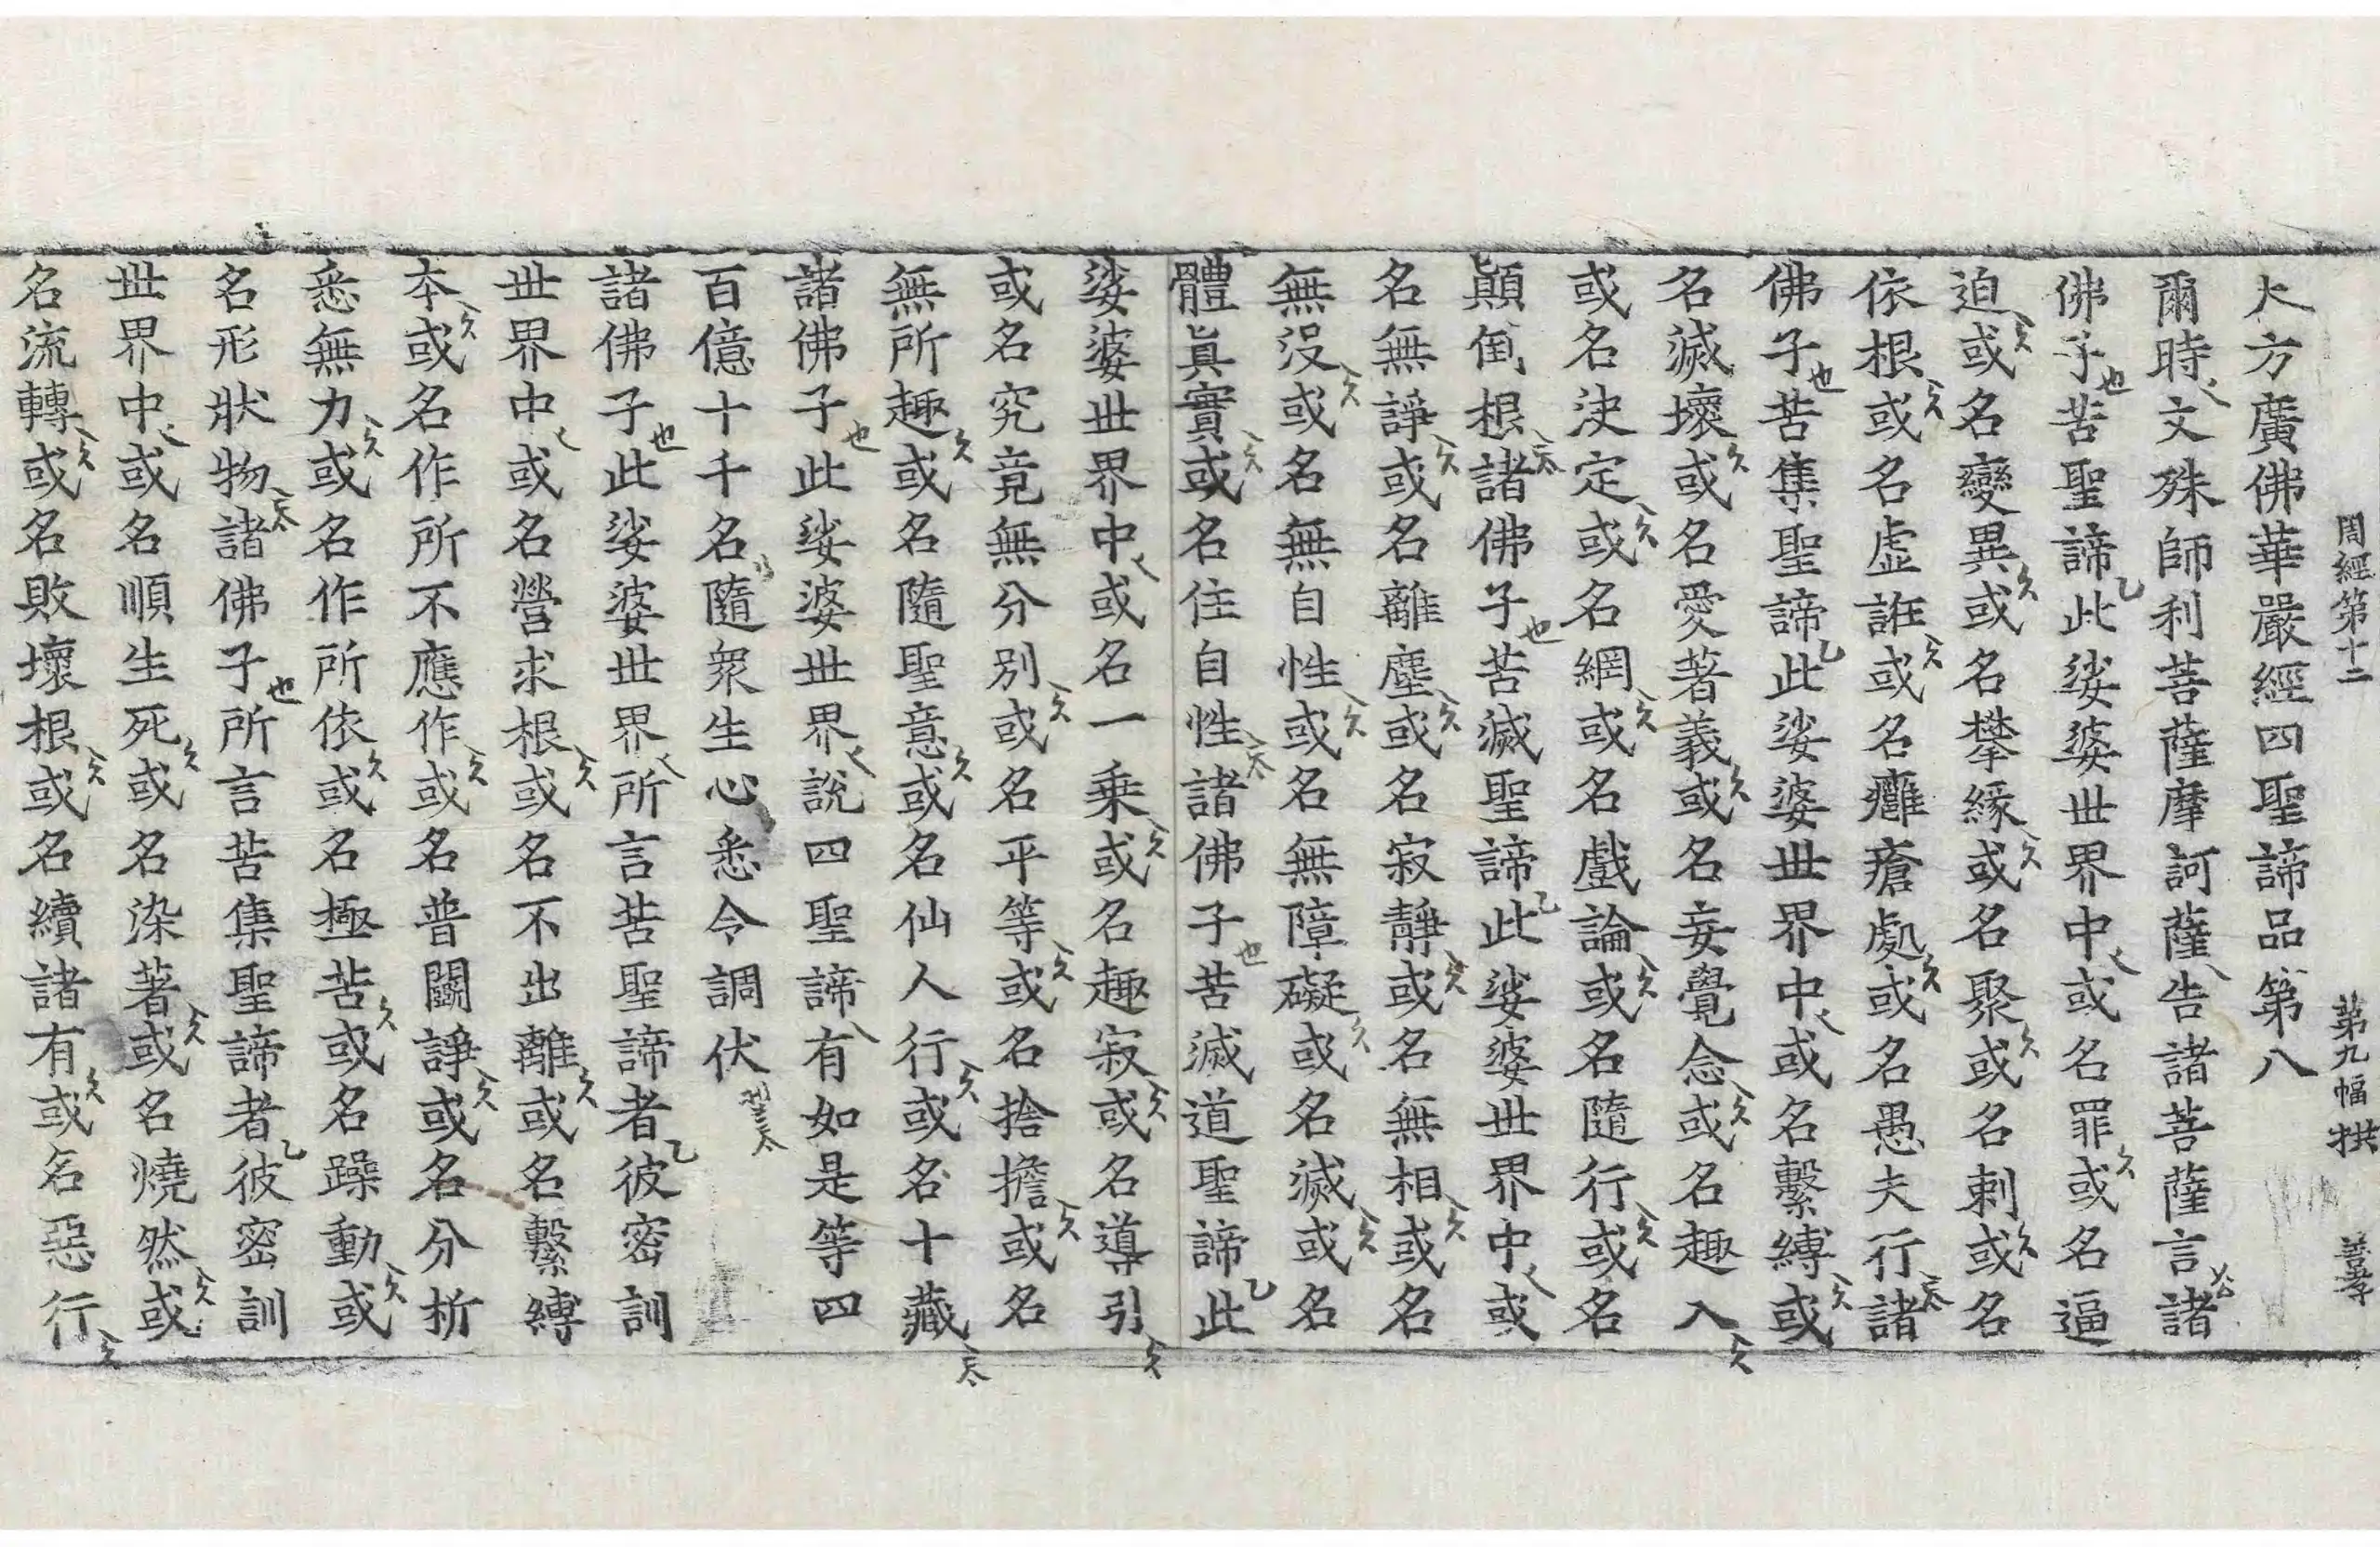 周經第十二 第九幅 拱 善孝
大方廣佛華嚴經四聖諦品第八
爾時文殊師利菩薩摩訶薩告諸菩薩言諸
佛子苦聖諦此娑婆世界中或名罪或名逼
迫或名變異或名攀緣或名聚或名刺或名
依根或名虛誑或名癰瘡處或名愚夫行諸
佛子苦集聖諦此娑婆世界中或名繫縛或
名滅壞或名愛著義或名妄覺念或名趣入
或名決定或名網或名戲論或名隨行或名
顛倒根諸佛子苦滅聖諦此娑婆世界中或
名無諍或名離塵或名寂靜或名無相或名
無沒或名無自性或名無障礙或名滅或名
體眞實或名住自性諸佛子苦滅道聖諦此
娑婆世界中或名一乘或名趣寂或名導引
或名究竟無分別或名平等或名捨擔或名
無所趣或名隨聖意或名仙人行或名十藏
諸佛子此娑婆世界說四聖諦有如是等四
百億十千名隨衆生心悉令調伏
諸佛子此娑婆世界所言苦聖諦者彼密訓
世界中或名營求根或名不出離或名繫縛
本或名作所不應作或名普鬪諍或名分析
悉無力或名作所依或名極苦或名躁動或
名形狀物諸佛子所言苦集聖諦者彼密訓
世界中或名順生死或名染著或名燒然或
名流轉或名敗壞根或名續諸有或名惡行